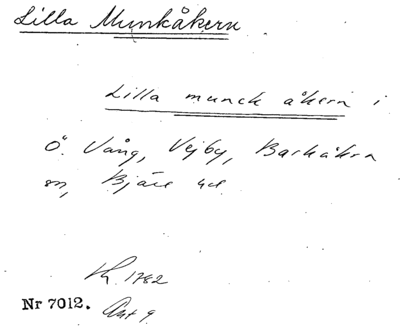 Lilla Munkåkern
Lilla munck åkern i
Ö. Vång, Vejby, Barkåkra
sn, Bjäre hd
Lh. 1782
Nr 7012. Akt 9.